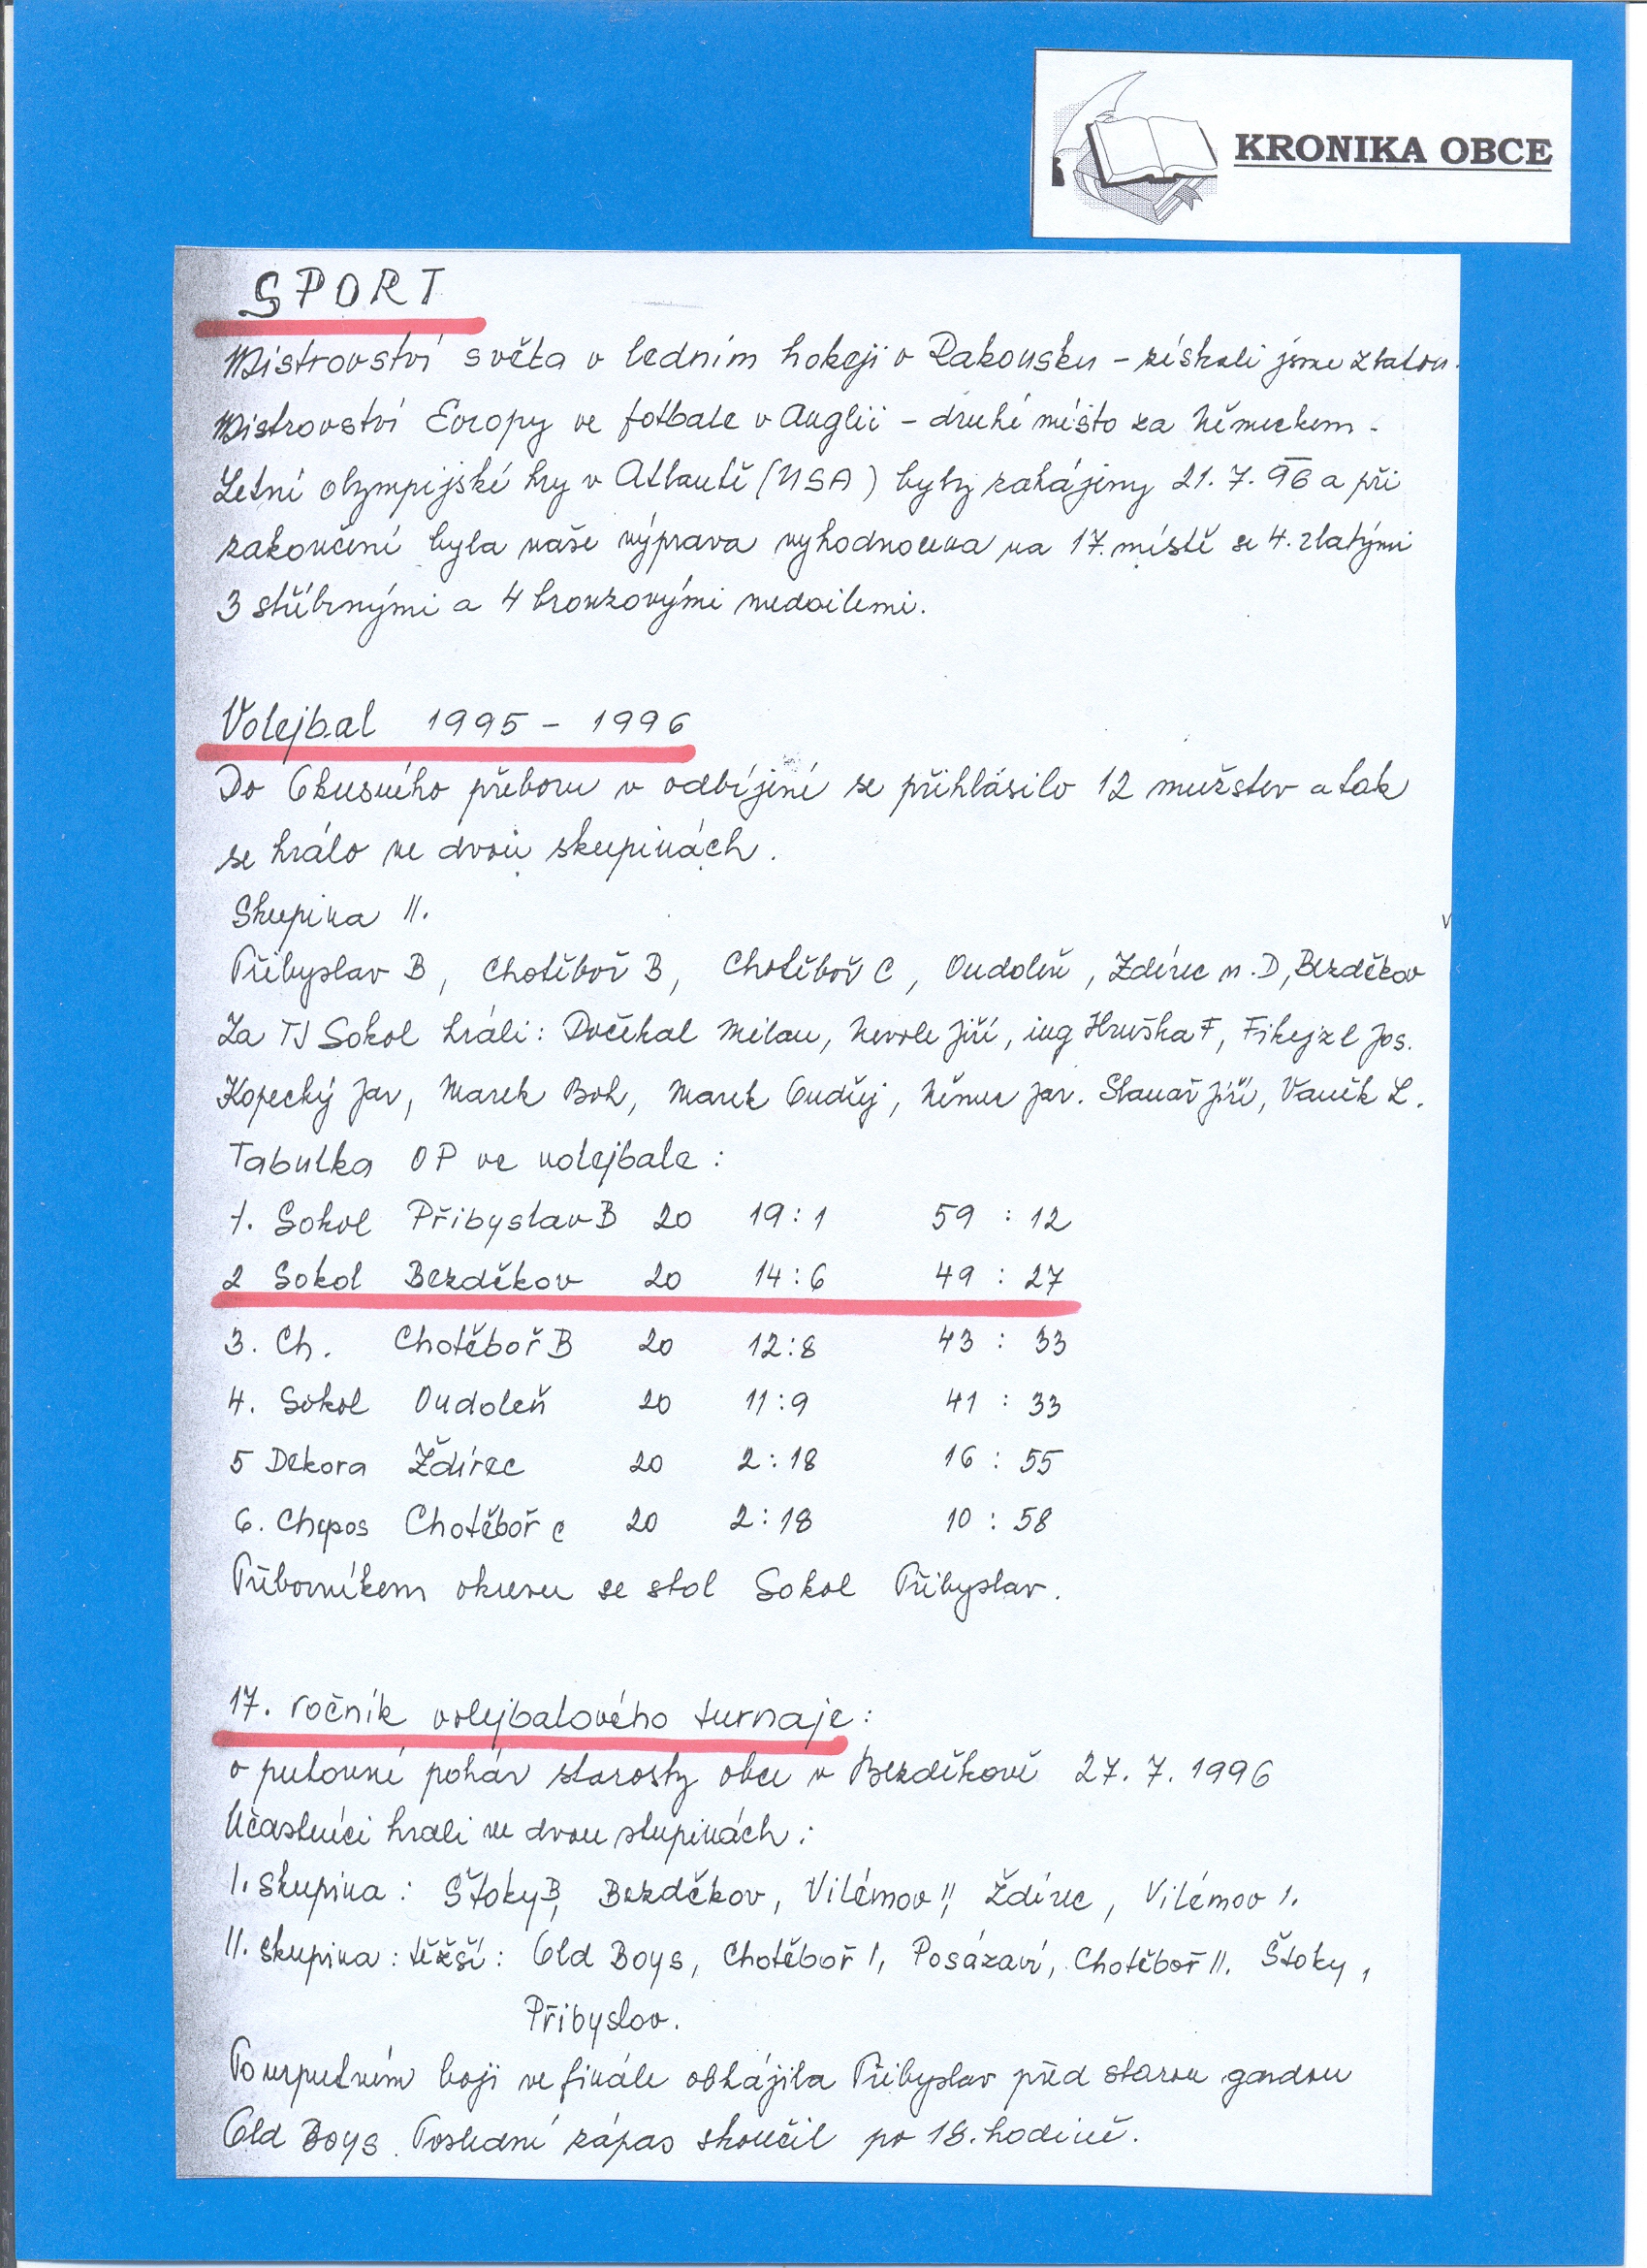 KRONIKA OBCE
SPORT
Mistrovství světa v ledním hokeji v Rakousku – získali jsme zlatou.
Mistrovství Evropy ve fotbale v Anglii – druhé místo za Německem.
Letní olympijské hry v Atlantě (USA) byly zahájeny 21. 7. 96 a při
zakončení byla naše výprava vyhodnocena na 17. místě se 4. zlatými
3 stříbrnými a 4 bronzovými medailemi.
Volejbal 1995 – 1996
Do Okresního přeboru v odbíjení se přihlásilo 12 mužstev a tak
se hrálo ve dvou skupinách.
Skupina II.
Přibyslav B, Chotěboř B, Chotěboř C, Oudoleň, Ždírec n. D, Bezděkov
Za TJ Sokol hráli: Dočekal Milan, Nevole Jiří, ing Hruška F, Fikejzl Jos.
Kopecký Jar, Marek Boh, Marek Ondřej, Němec Jar. Slanař Jiří, Vaněk L.
Tabulka OP ve volejbale:
1. Sokol Přibyslav B 20 19:1 59 : 12
2 Sokol Bezděkov 20 14:6 49 : 27
3. Ch. Chotěboř B 20 12:8 43 : 33
4. Sokol Oudoleň 20 11:9 41 : 33
5 Dekora Ždírec 20 2:18 16 : 55
6. Chepos Chotěboř C 20 2:18 10 : 58
Přeborníkem okresu se stal Sokol Přibyslav.
17. ročník volejbalového turnaje:
o putovní pohár starosty obce v Bezděkově 27. 7. 1996
Účastníci hrali ve dvou skupinách:
I. skupina: Štoky B, Bezděkov, Vilémov II, Ždírec, Vilémov I.
II. skupina: těžší: Old Boys, Chotěboř I, Posázaví, Chotěboř II. Štoky,
Přibyslav.
Po urputném boji ve finále obhájila Přibyslav před starou gardou
Old Boys. Poslední zápas skončil po 18. hodině.